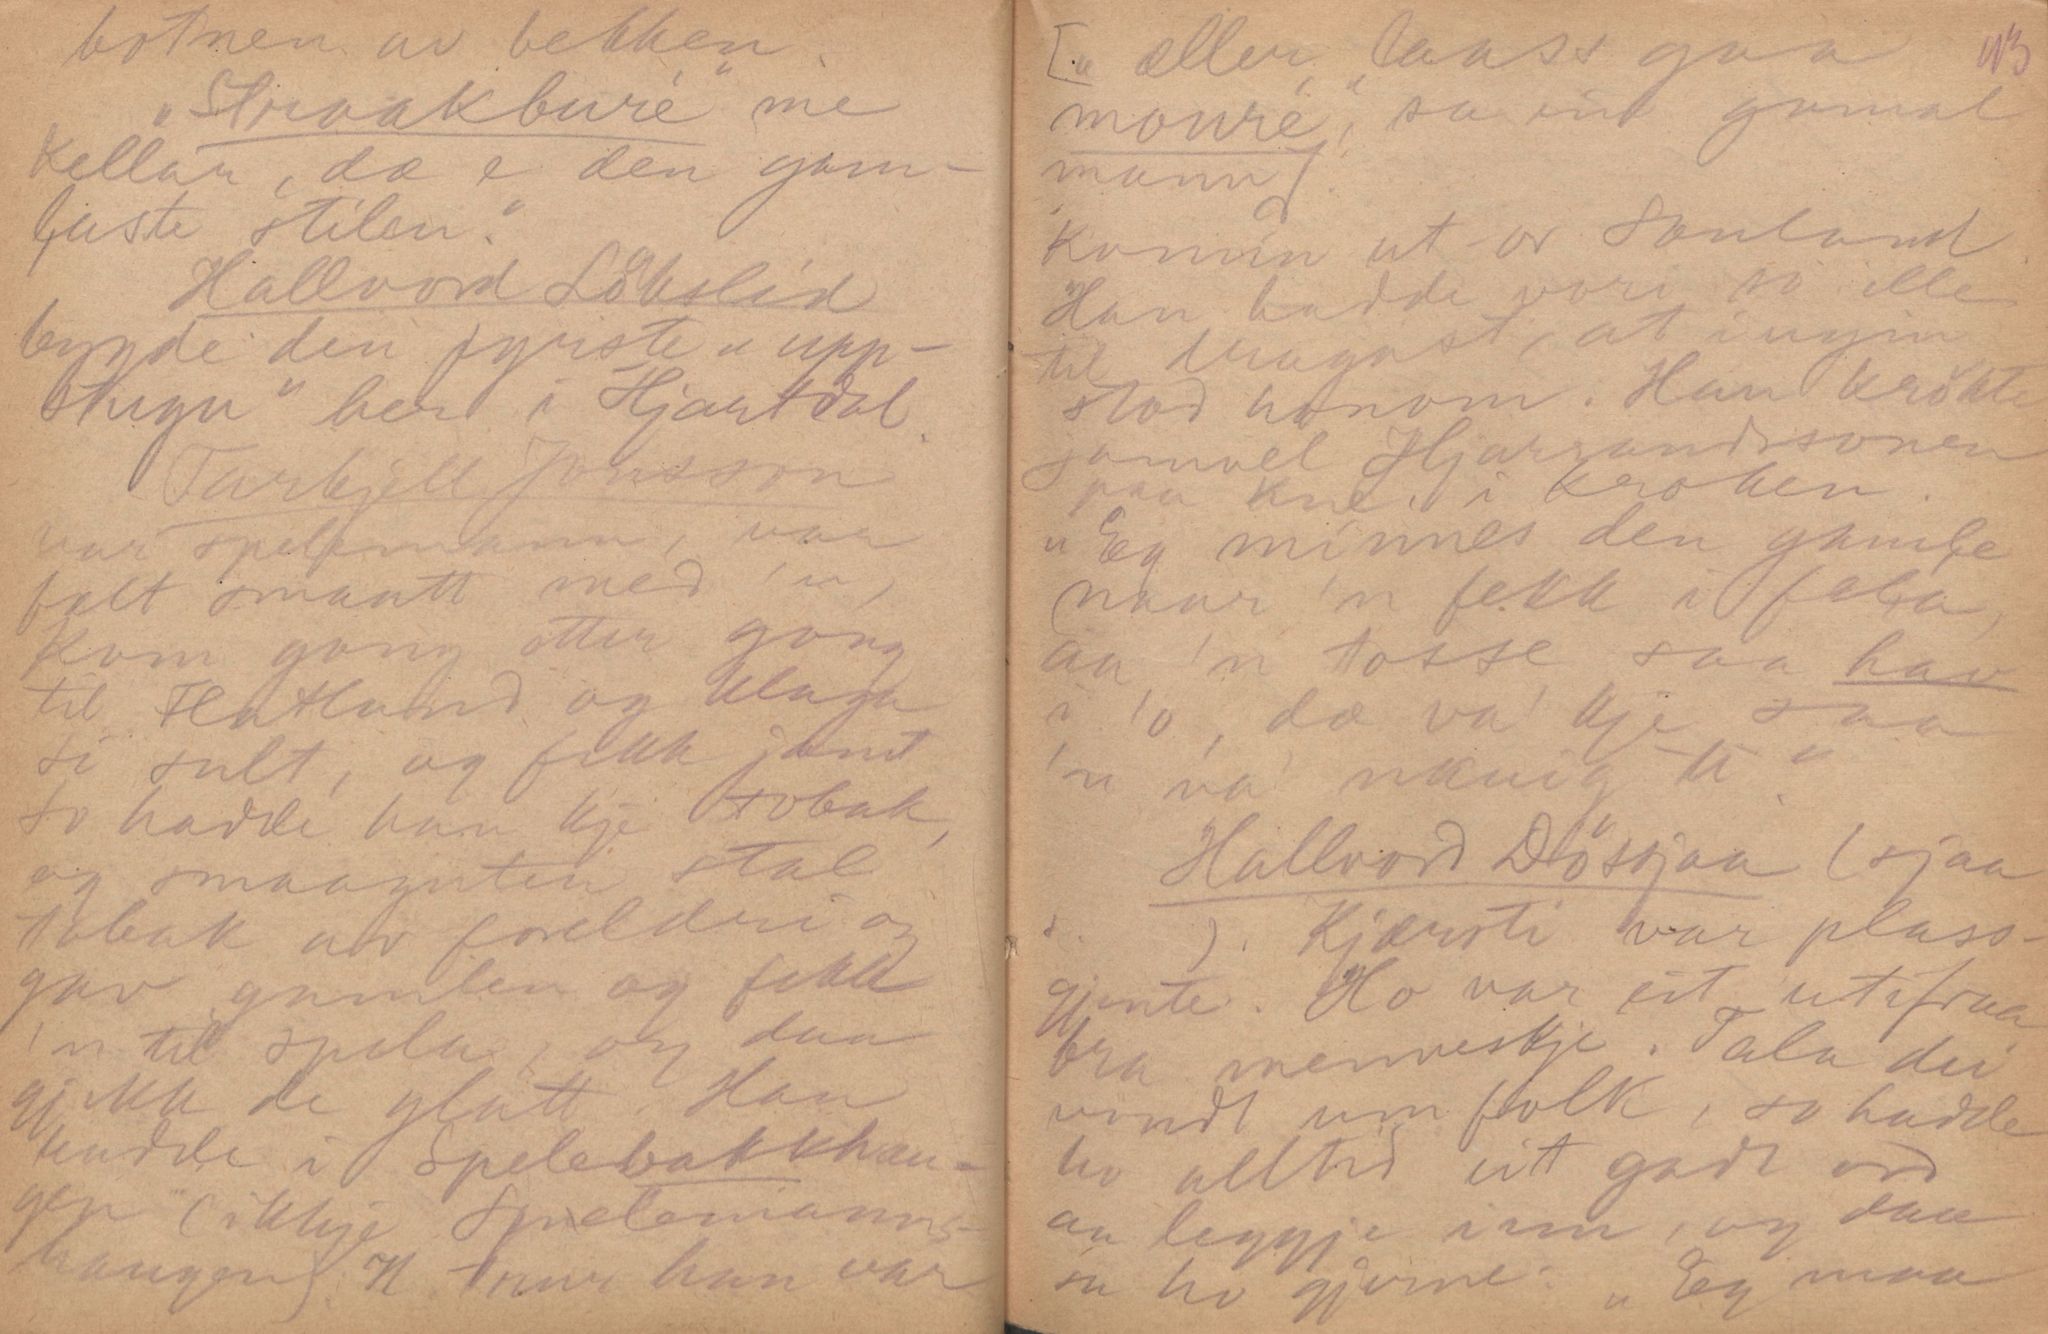 botnen av bekken.
„Straakburé" me
kellar, dæ e den gam-
laste stilen."
Hallvord Lökslid
bygde den fyrste „upp-
stugu" her i Hjartdal.
Tarkjell Jonsson
var spelemann, var
folt smaatt med 'n,
kom gong etter gong
til Flatland og klaga
si sult, og fekk jamt
so hadde han kje tobak,
og smaaguten stal
tobak av foreldri og
gav gamlen og fekk
'n til spela, og daa
gjekk de glatt. Han
budde i Spelebakkhau-
gen (ikkje Spelemanns-
haugen). H trur han var
[„ eller, laass gaa 113
mouré", sa ein gamal
mann].
komin ut or Sauland.
Han hadde vori so ille
til dragast, at ingin
stod honom. Han krökte
Samvel Hjarrandssonen
paa kne i kroken.
„Eg minnes den gamle
naar 'n fekk i fela,
aa 'n tosse saa hav
i 'o, dæ va' kje saa
'n va' ukuig ti."
Hallvord Dösjaa (sjaa
s. ). Kjærsti var plass-
gjente. Ho var eit utifraa
bra menneskje. Tala dei
vondt um folk, so hadde
ho alltid eit godt ord
aa leggje inn, og daa
sa ho gjerne: „Eg maa